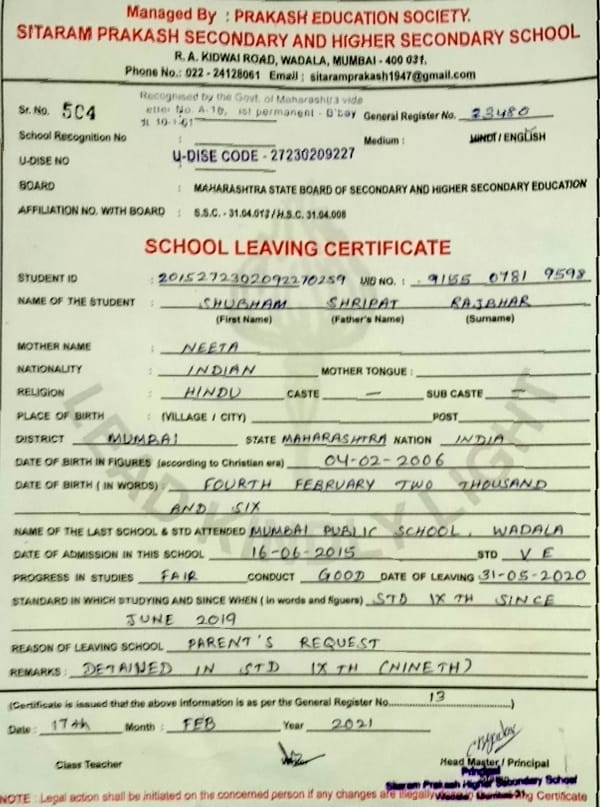 Managed By : PRAKASH EDUCATION SOCIETY.
SITARAM PRAKASH SECONDARY AND HIGHER SECONDARY SCHOOL
R. A. KIDWAI ROAD, WADALA, MUMBAI - 400 031.
Phone No.: 022 - 24128061 Email : sitaramprakash1947@gmail.com
Recognised by the Govt. of Maharashtra vide
Sr. No. 504 etter No. A-10, ist permanent - B'bay General Register No. 23480
School Recognition No : Medium : HINDI / ENGLISH
U-DISE NO U-DISE CODE - 27230209227
BOARD : MAHARASHTRA STATE BOARD OF SECONDARY AND HIGHER SECONDARY EDUCATION
AFFILIATION NO. WITH BOARD : S.S.C. - 31.04.013 / H.S.C. 31.04.008
SCHOOL LEAVING CERTIFICATE
STUDENT ID : 2015272302092270259 UID NO. : 9155 0781 9598
NAME OF THE STUDENT : SHUBHAM SHRIPAT RAJBHAR
(First Name) (Father's Name) (Surname)
MOTHER NAME : NEETA
NATIONALITY : INDIAN MOTHER TONGUE :
RELIGION : HINDU CASTE — SUB CASTE —
PLACE OF BIRTH : (VILLAGE / CITY) POST
DISTRICT MUMBAI STATE MAHARASHTRA NATION INDIA
DATE OF BIRTH IN FIGURES (according to Christian era) 04-02-2006
DATE OF BIRTH ( IN WORDS) : FOURTH FEBRUARY TWO THOUSAND
AND SIX
NAME OF THE LAST SCHOOL & STD ATTENDED MUMBAI PUBLIC SCHOOL, WADALA
DATE OF ADMISSION IN THIS SCHOOL 16-06-2015 STD V E
PROGRESS IN STUDIES FAIR CONDUCT GOOD DATE OF LEAVING 31-05-2020
STANDARD IN WHICH STUDYING AND SINCE WHEN ( in words and figuers) STD IX TH SINCE
JUNE 2019
REASON OF LEAVING SCHOOL PARENT'S REQUEST
REMARKS : DETAINED IN STD IX TH (NINETH)
(Certificate is issued that the above information is as per the General Register No. 13 )
Date : 17th Month : FEB Year 2021
Class Teacher Head Master / Principal
Principal
Sitaram Prakash Higher Secondary School
NOTE : Legal action shall be initiated on the concerned person if any changes are illegally Leaving Certificate
LEAD KINDLY LIGHT